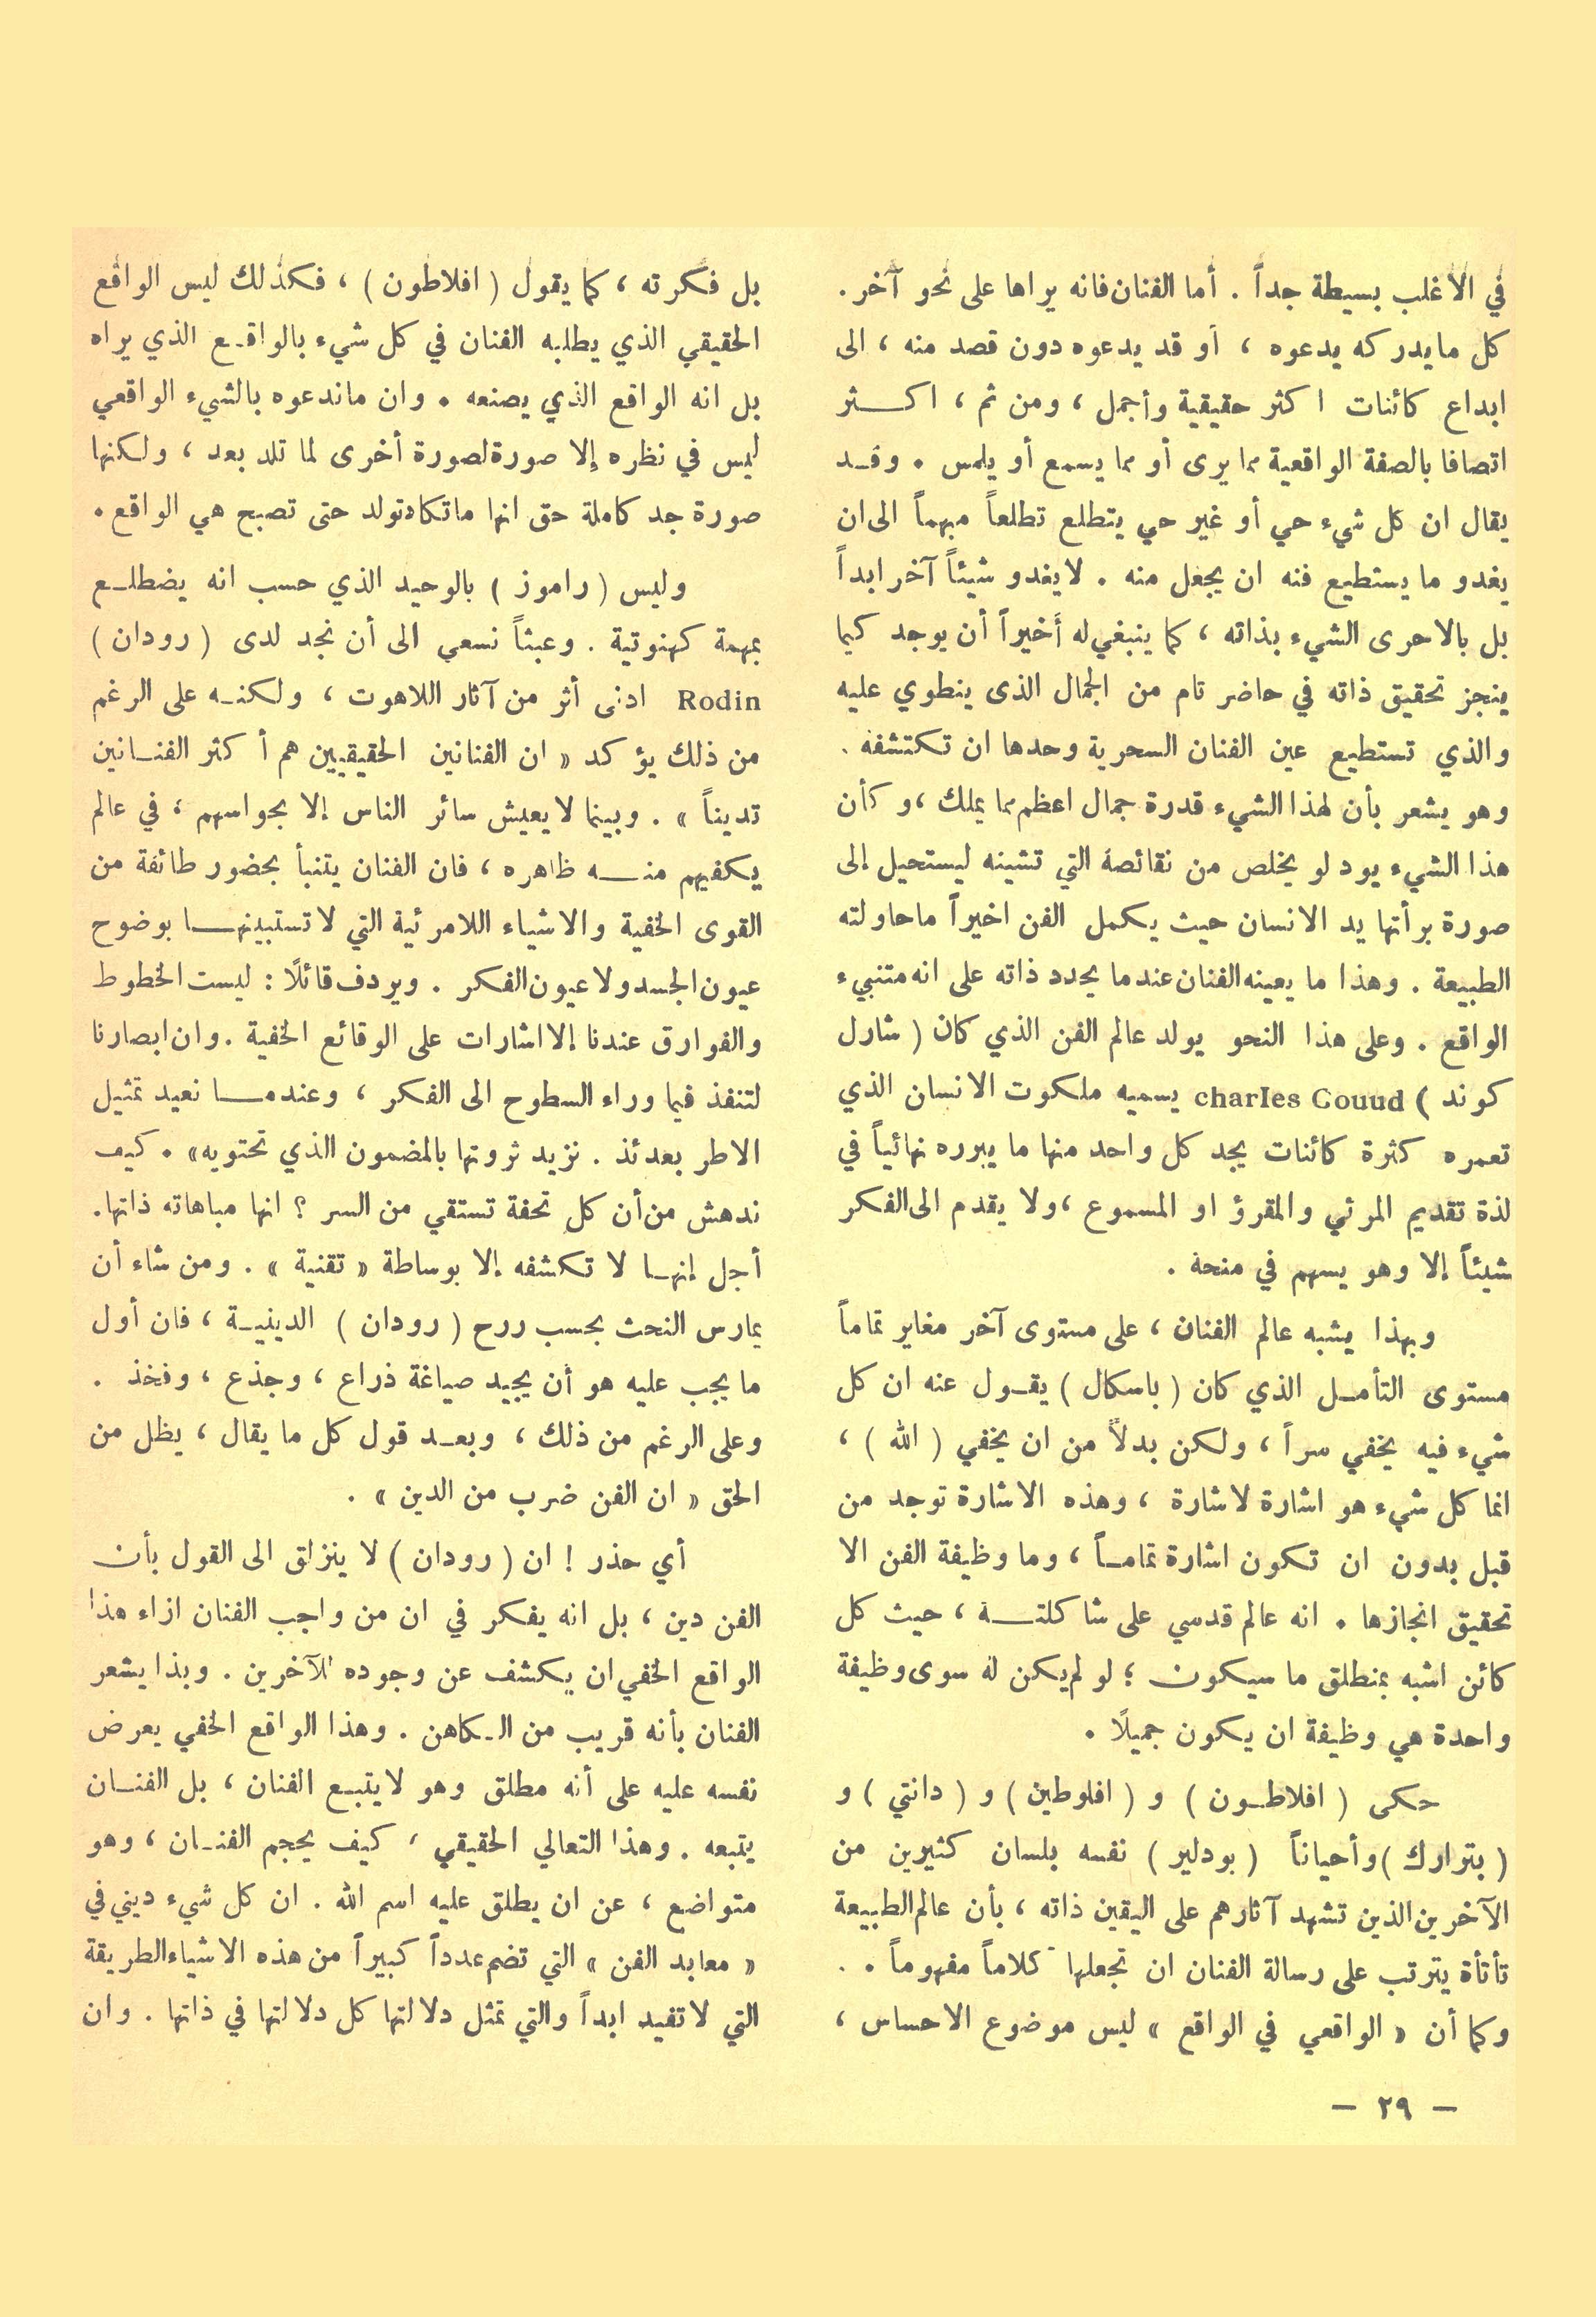 في الاغلب بسيطة جداً . أما الفنان فانه يراها على نحو آخر .
كل مايدركه يدعوه ، أو قد يدعوه دون قصد منه ، الى
ابداع كائنات اكثر حقيقية وأجمل ، ومن ثم ، اكثر
اتصافا بالصفة الواقعية مما يرى أو مما يسمع أو يلمس . وقد
يقال ان كل شيء حي أو غير حي يتطلع تطلعاً مبهماً الى ان
يغدو ما يستطيع فنه ان يجعل منه . لا يغدو شيئاً آخر ابداً
بل بالاحرى الشيء بذاته ، كما ينبغي له أخيراً أن يوجد كيما
ينجز تحقيق ذاته في حاضر تام من الجمال الذى ينطوي عليه
والذي تستطيع عين الفنان السحرية وحدها ان تكتشفه .
وهو يشعر بأن لهذا الشيء قدرة جمال اعظم مما يملك ، وكأن
هذا الشيء يود لو يخلص من نقائصه التي تشينه ليستحيل إلى
صورة برأتها يد الانسان حيث يكمل الفن اخيراً ماحاولته
الطبيعة . وهذا ما يعينه الفنان عندما يحدد ذاته على انه متنبيء
الواقع . وعلى هذا النحو يولد عالم الفن الذي كان ( شارل
كوند ) charles Gouud يسميه ملكوت الانسان الذي
تعمره كثرة كائنات يجد كل واحد منها ما يبرره نهائياً في
لذة تقديم المرئي والمقرؤ او المسموع ، ولا يقدم الى الفكر
شيئاً إلا وهو يسهم في منحه .
وبهذا يشبه عالم الفنان ، على مستوى آخر مغاير تماماً
مستوى التأمل الذي كان ( باسكال ) يقول عنه ان كل
شيء فيه يخفي سراً ، ولكن بدلاً من ان يخفي ( الله ) ،
انما كل شيء هو اشارة لاشارة ، وهذه الاشارة توجد من
قبل بدون ان تكون اشارة تماماً ، وما وظيفة الفن الا
تحقيق انجازها . انه عالم قدسي على شاكلته ، حيث كل
كائن اشبه بمنطلق ما سيكون ؛ لو لم يكن له سوى وظيفة
واحدة هي وظيفة ان يكون جميلاً .
حكى ( افلاطون ) و ( افلوطين ) و ( دانتي ) و
( بترارك ) وأحياناً ( بودلير ) نفسه بلسان كثيرين من
الآخرين الذين تشهد آثارهم على اليقين ذاته ، بأن عالم الطبيعة
تأتأة يترتب على رسالة الفنان ان تجعلها كلاماً مفهوماً . .
وكما أن « الواقعي في الواقع » ليس موضوع الاحساس ،
بل فكرته ، كما يقول ( افلاطون ) ، فكذلك ليس الواقع
الحقيقي الذي يطلبه الفنان في كل شيء بالواقع الذي يراه
بل انه الواقع الذي يصنعه . وان ماندعوه بالشيء الواقعي
ليس في نظره إلا صورة لصورة أخرى لما تلد بعد ، ولكنها
صورة جد كاملة حق انها ماتكاد تولد حتى تصبح هي الواقع .
وليس ( راموز ) بالوحيد الذي حسب انه يضطلع
بمهمة كهنوتية . وعبثاً نسعى الى أن نجد لدى ( رودان )
Rodin ادنى أثر من آثار اللاهوت ، ولكنه على الرغم
من ذلك يؤكد « ان الفنانين الحقيقيين هم أكثر الفنانين
تديناً » . وبينما لا يعيش سائر الناس إلا بحواسهم ، في عالم
يكفيهم منه ظاهره ، فان الفنان يتنبأ بحضور طائفة من
القوى الخفية والاشياء اللامرئية التي لا تستبينها بوضوح
عيون الجسد ولا عيون الفكر . ويردف قائلاً : ليست الخطوط
والفوارق عندنا إلا اشارات على الوقائع الخفية . وان ابصارنا
لتنفذ فيما وراء السطوح الى الفكر ، وعندما نعيد تمثيل
الاطر بعدئذ . نزيد ثروتها بالمضمون الذي تحتويه » . كيف
ندهش من أن كل تحفة تستقي من السر ؟ انها مباهاته ذاتها .
أجل إنها لا تكشفه إلا بوساطة « تقنية » . ومن شاء أن
يمارس النحث بحسب ررح ( رودان ) الدينية ، فان أول
ما يجب عليه هو أن يجيد صياغة ذراع ، وجذع ، وفخذ .
وعلى الرغم من ذلك ، وبعد قول كل ما يقال ، يظل من
الحق « ان الفن ضرب من الدين » .
أي حذر ! ان ( رودان ) لا ينزلق الى القول بأن
الفن دين ، بل انه يفكر في ان من واجب الفنان ازاء هذا
الواقع الخفي ان يكشف عن وجوده للآخرين . وبذا يشعر
الفنان بأنه قريب من الكاهن . وهذا الواقع الخفي يعرض
نفسه عليه على أنه مطلق وهو لا يتبع الفنان ، بل الفنان
يتبعه . وهذا التعالي الحقيقي ، كيف يحجم الفنان ، وهو
متواضع ، عن ان يطلق عليه اسم الله . ان كل شيء ديني في
« معابد الفن » التي تضم عدداً كبيراً من هذه الاشياء الطريقة
التي لا تفيد ابداً والتي تمثل دلالتها كل دلالتها في ذاتها . وان
— ٢٩ —